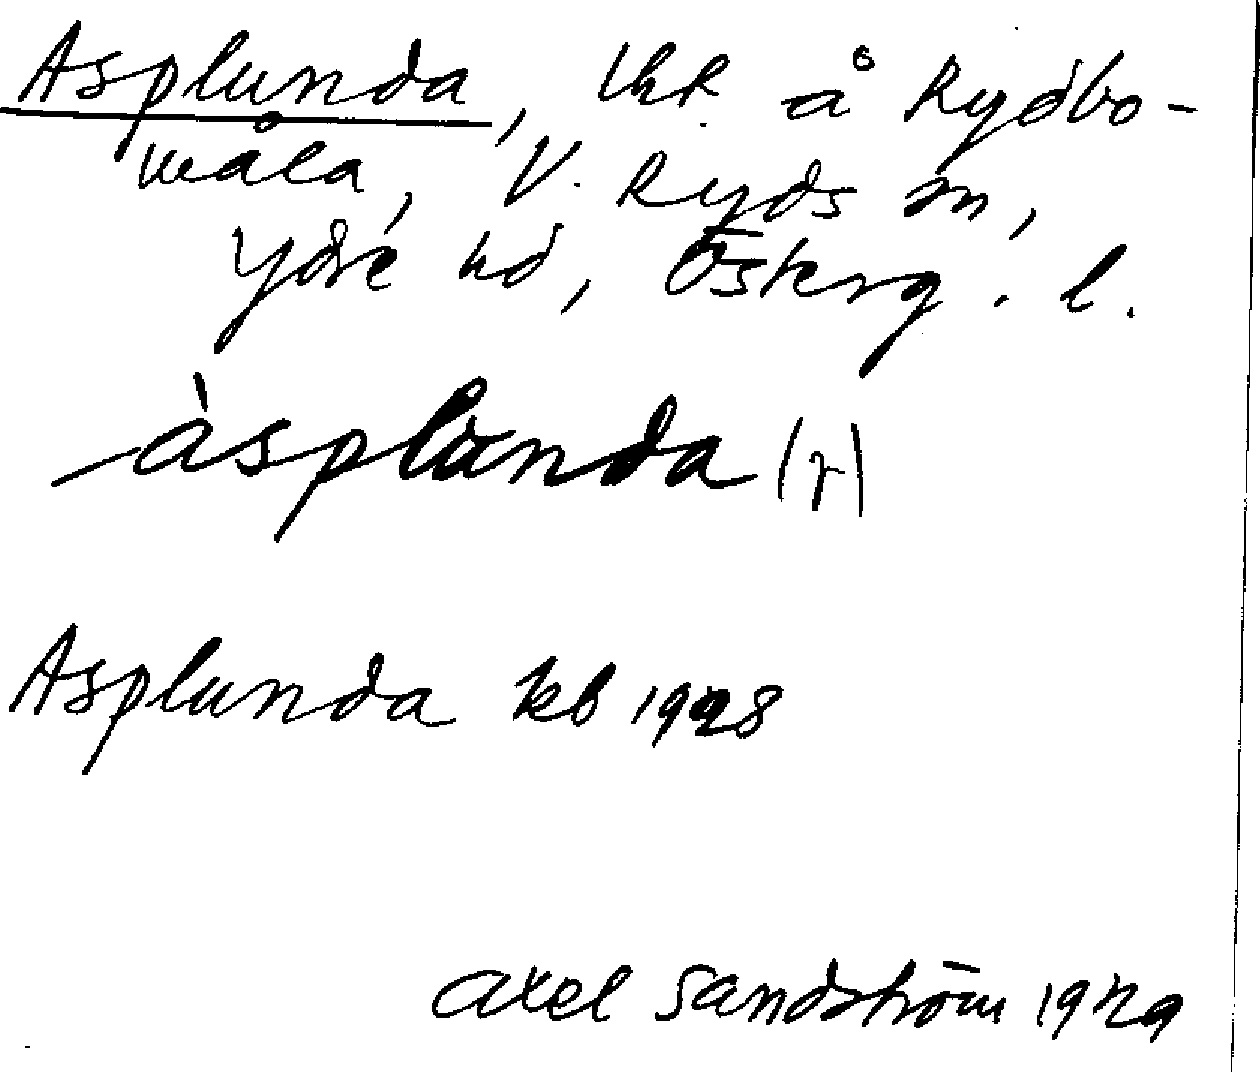 Asplunda, lht. å Rydbo-
måla, V. Ryds sn,
Ydre hd, Österg. l.
àsplùnda (γ)
Asplunda kb 1928
Axel Sandström 1929